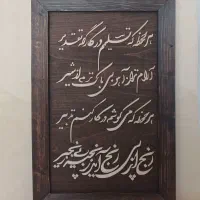 هر لحظه که تسلیمم در کارگه تقدیر
آرام تر از آهو بی باک تر از شیر
هر لحظه که می کوشم در کار کنم تدبیر
رنج از پی رنج آید زنجیر پی زنجیر